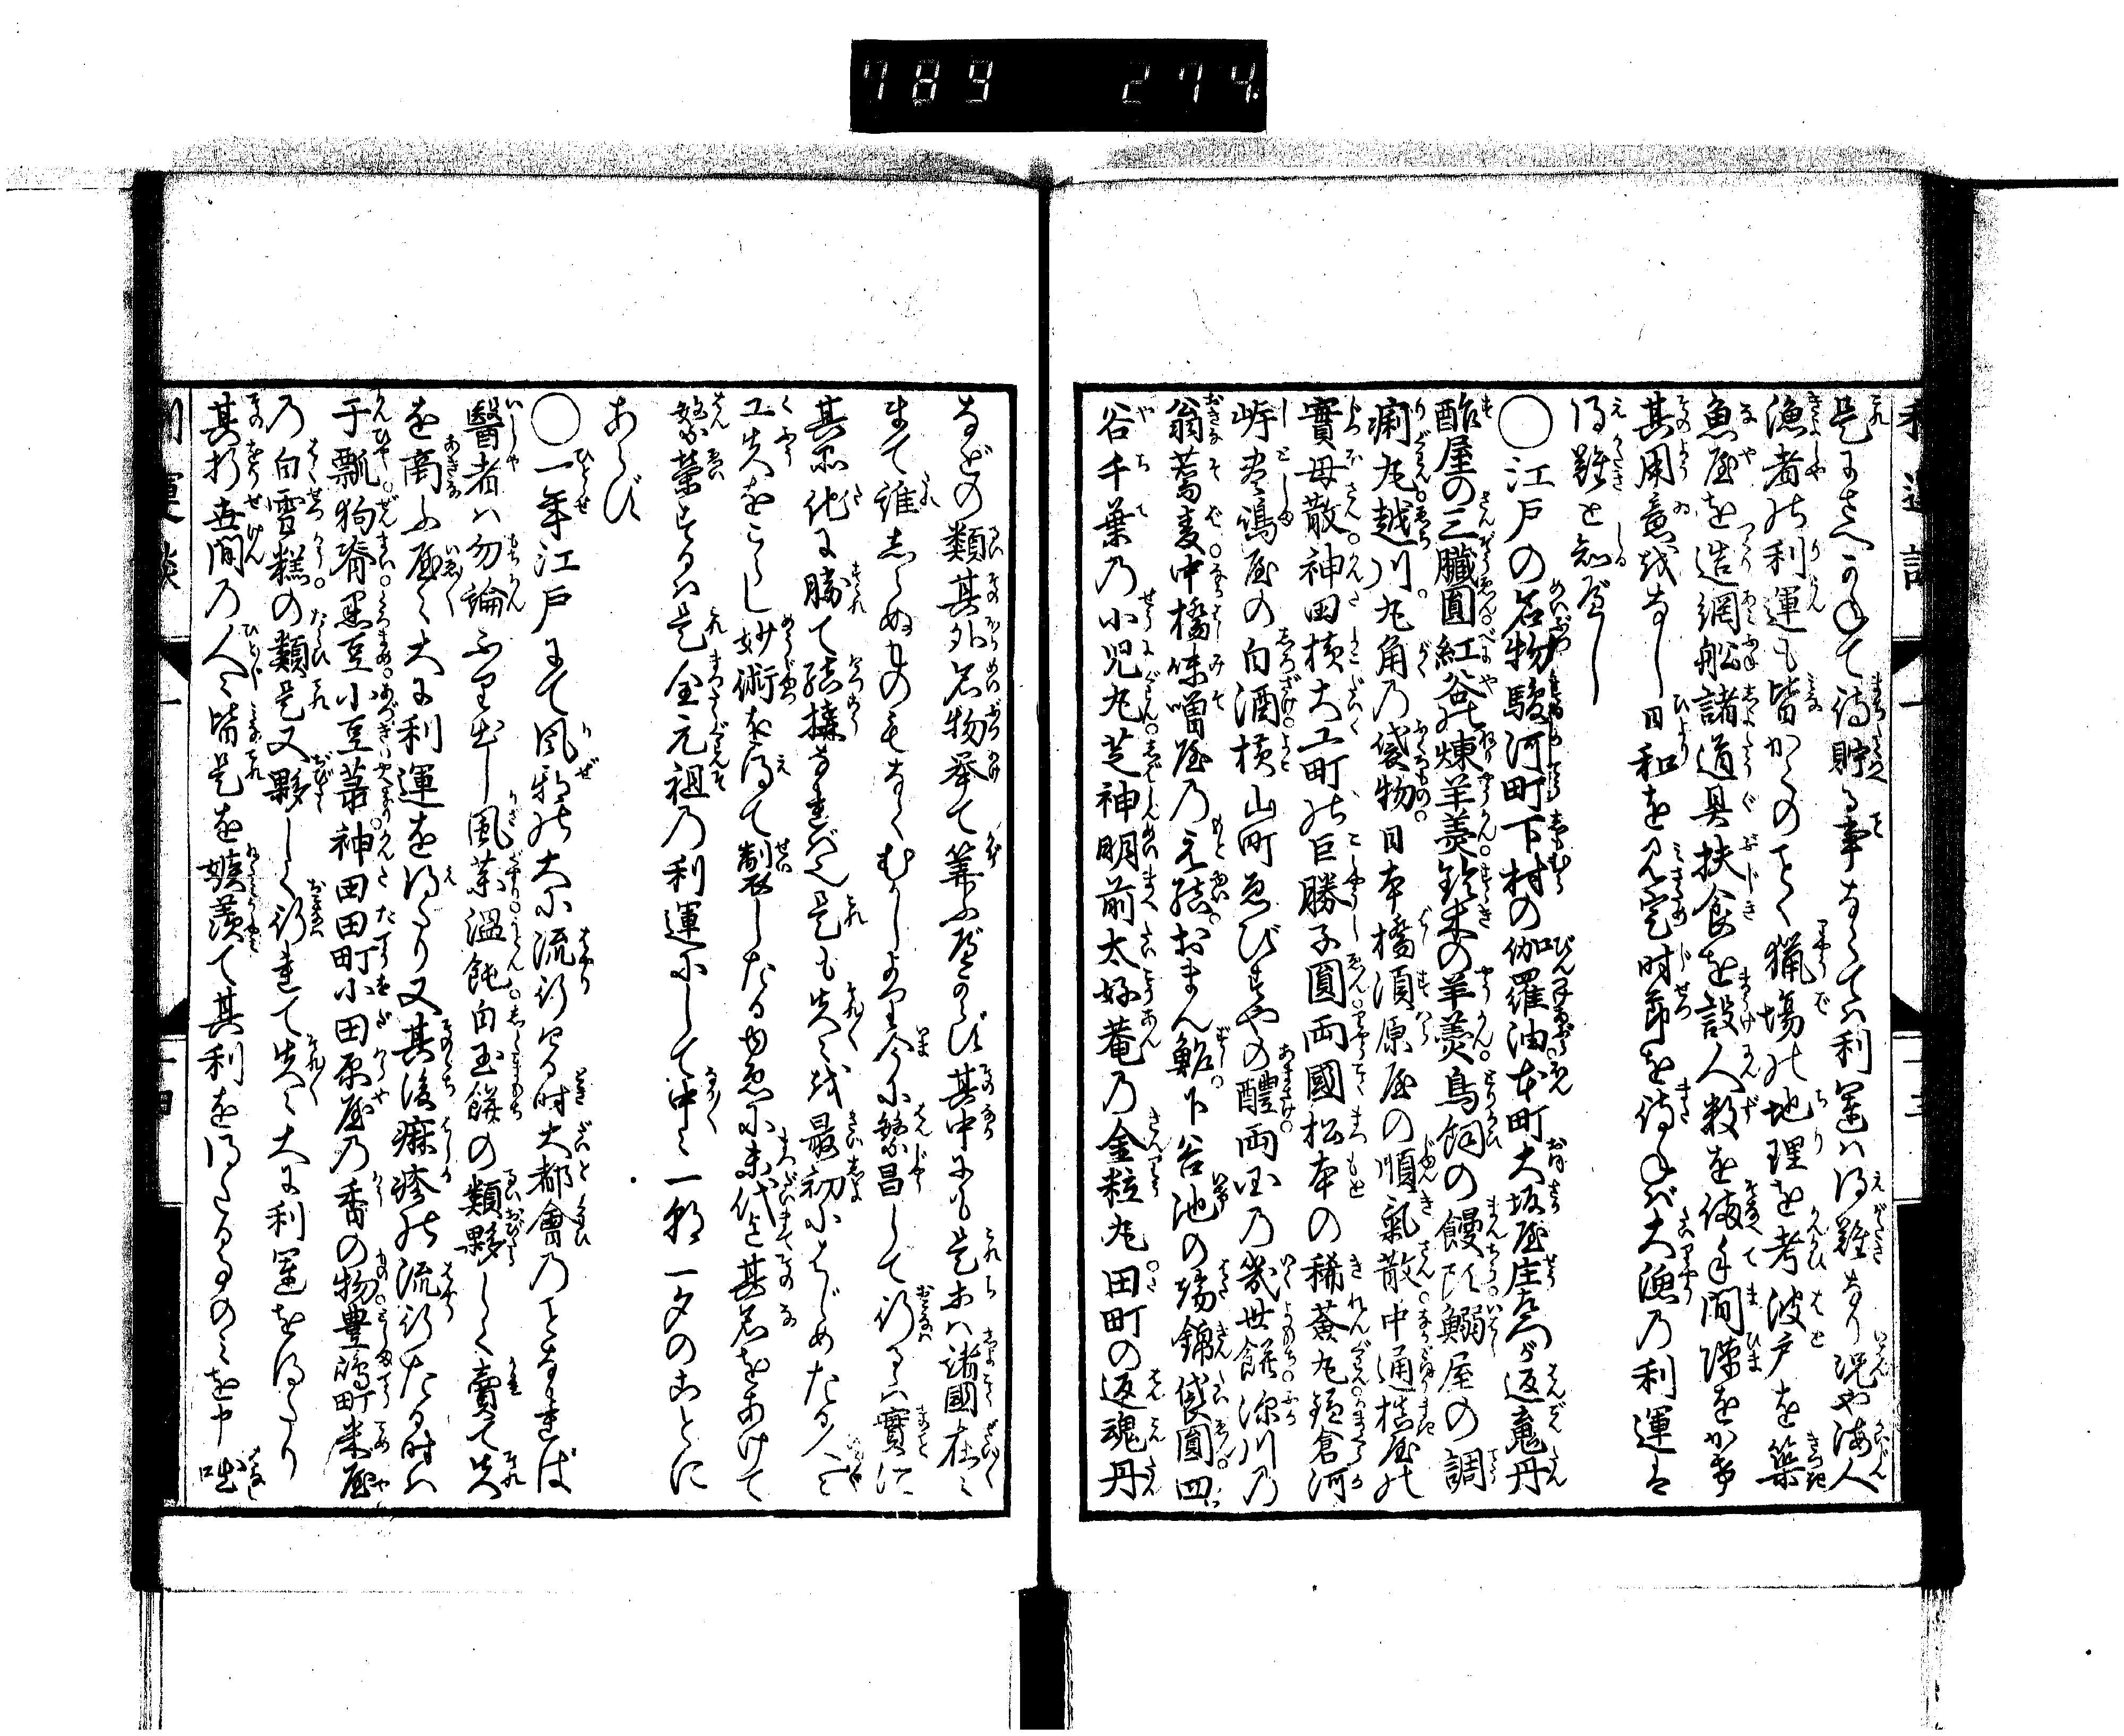 789 274
是にさへかねて待貯る事なくては利運は得難きなり況や海人
漁者の利運も皆かくのごとく猟場の地理を考波戸を築
魚屋を造網船諸道具扶食を設人数を備手間隙をかき
其用意をなし日和を見定時節を待ねば大漁の利運は
得難と知べし
○江戸の名物駿河町下村の伽羅油本町大坂屋庄左衛門が返魂丹
酢屋の三臓圓紅谷の煉羊羹鈴木の羊羹鳥飼の饅頭鰯屋の調
痢丸越川丸角の袋物日本橋須原屋の順氣散中通桔屋の
實母散神田横大工町の巨勝子圓両國松本の稀薟丸鎌倉河
岸豊嶋屋の白酒横山町ゑびすやの醴両国の幾世餅深川の
翁蕎麦中橋味噌屋の元結おまん鮓下谷池の端錦袋圓四
谷千葉の小児丸芝神明前太好菴の金粒丸田町の返魂丹
などの類其外名物挙て算ふべからず其中にも是等は諸國在々
まで誰しらぬものもなくむかしより今に繁昌して行るゝは實に
其品他に勝て結構なればなり是も夫々最初にはじめたる人
工夫をこらし妙術を得て製したるゆゑに末代迄其名をあげて
繁榮するは是全元祖の利運にして中々一朝一夕のことに
あらず
○一年江戸にて風邪の大に流行する時大都會のことなれば
醫者は勿論ふり出し風薬温飩白玉餅の類夥しく賣て夫
を商ふ家々大に利運を得たり又其後痲疹の流行たる時は
干瓢狗脊黒豆小豆薬神田田町小田原屋の香の物豊嶋町米屋
の白雪糕の類是又夥しく行れて夫々大に利運を得たり
其折世間の人々皆是を嫉羨て其利を得たるものを中咄
利運談